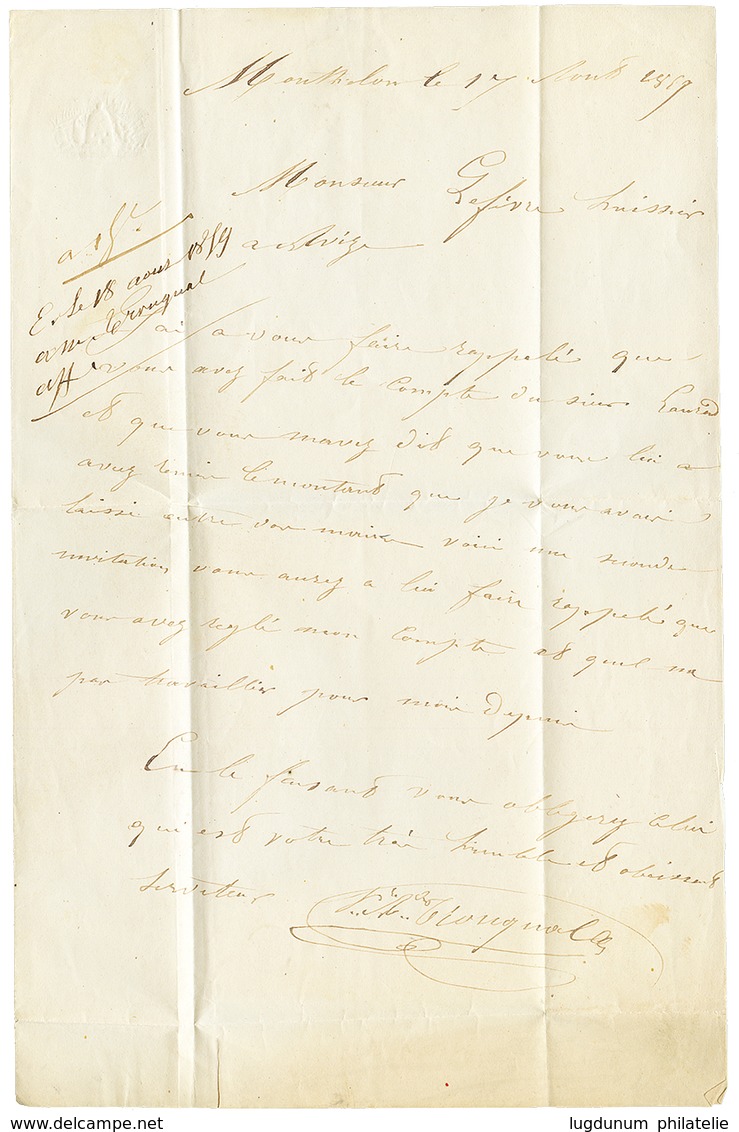 Monthelon le 17 Aout 1859
Monsieur Lefèvre huissier
a avize
E. le 18 aout 1859
a mr Trouqual
aff
ai a vous faire rappelé que
vous avez fait le Compte du sieur
et que vous mavez dit que vous lui a
avez remis le montant que je vous avais
laissé entre vos mains voici une seconde
invitation vous aurez a lui faire rappelé que
vous avez reglé mon Compte et quil na
pas travaillier pour moi depuis
En le faisant vous obbligerez celui
qui est votre très humble et obeissant
serviteur
lugdunum philatelie